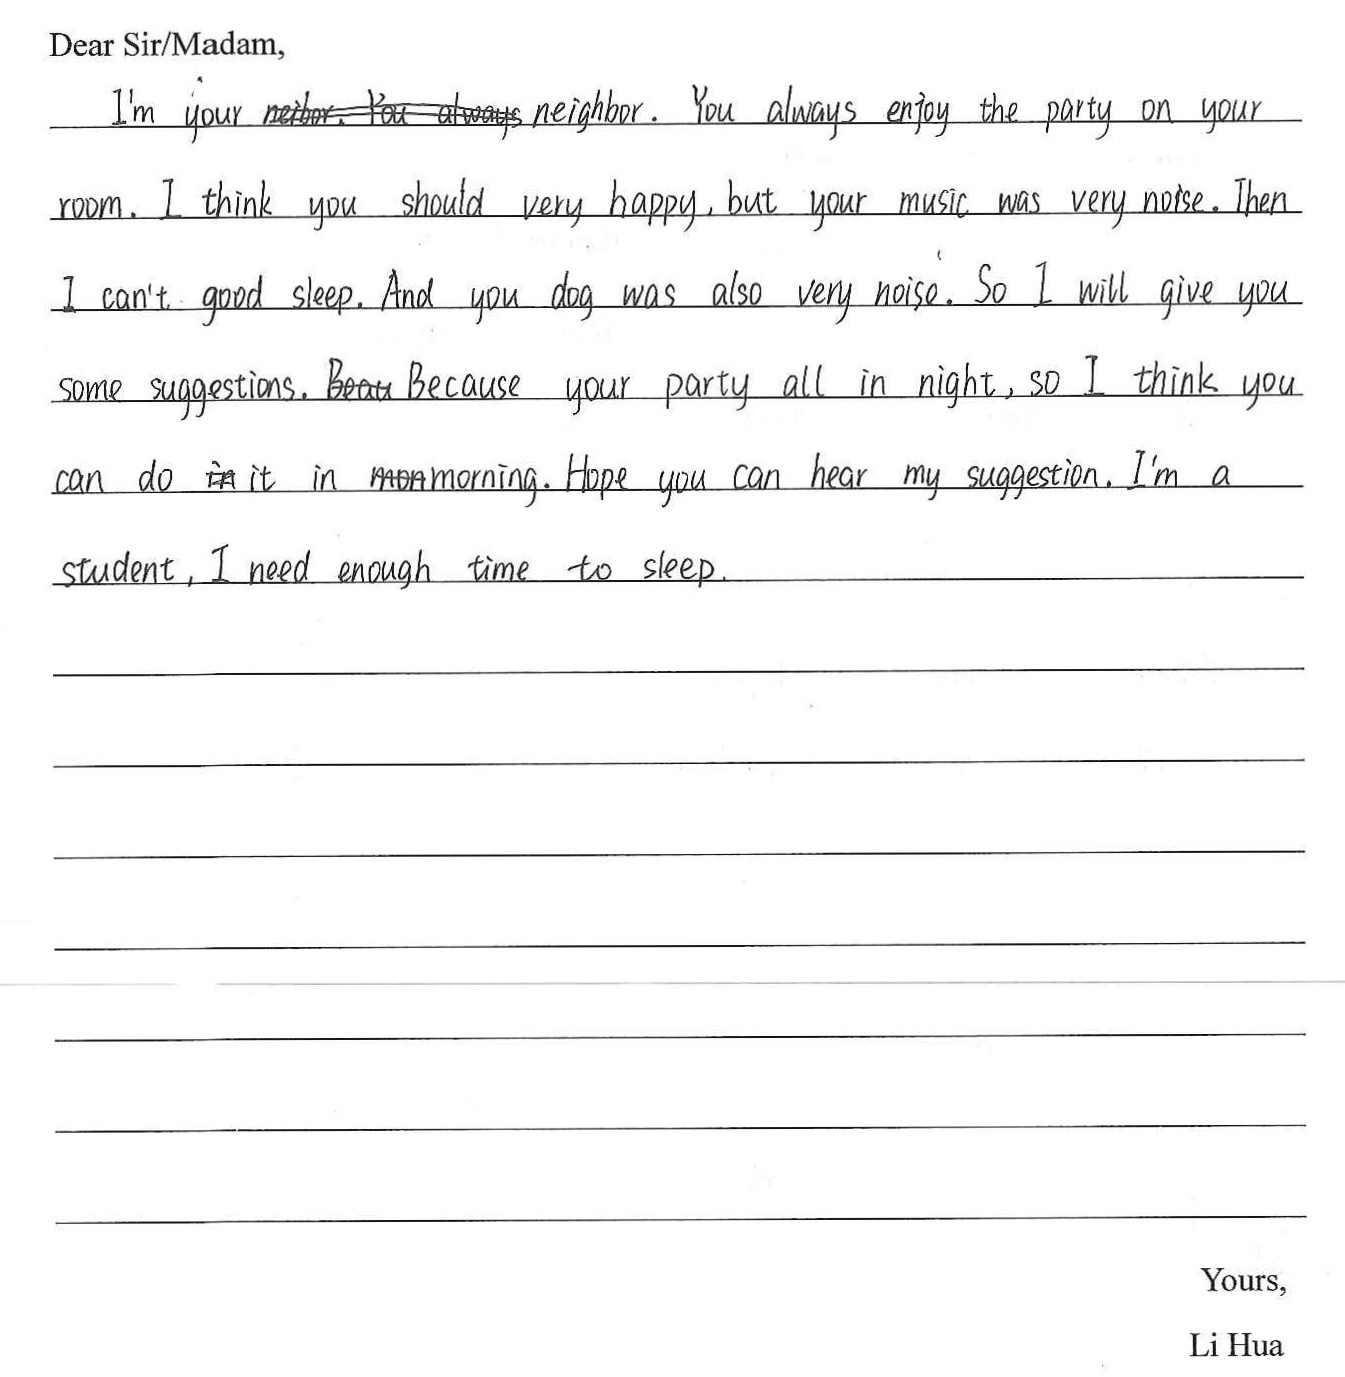 Dear Sir/Madam,
I'm your neibor. You always neighbor. You always enjoy the party on your
room. I think you should very happy, but your music was very noise. Then
I can't good sleep. And you dog was also very noise. So I will give you
some suggestions. Beau Because your party all in night, so I think you
can do in it in mon morning. Hope you can hear my suggestion. I'm a
student, I need enough time to sleep.
Yours,
Li Hua